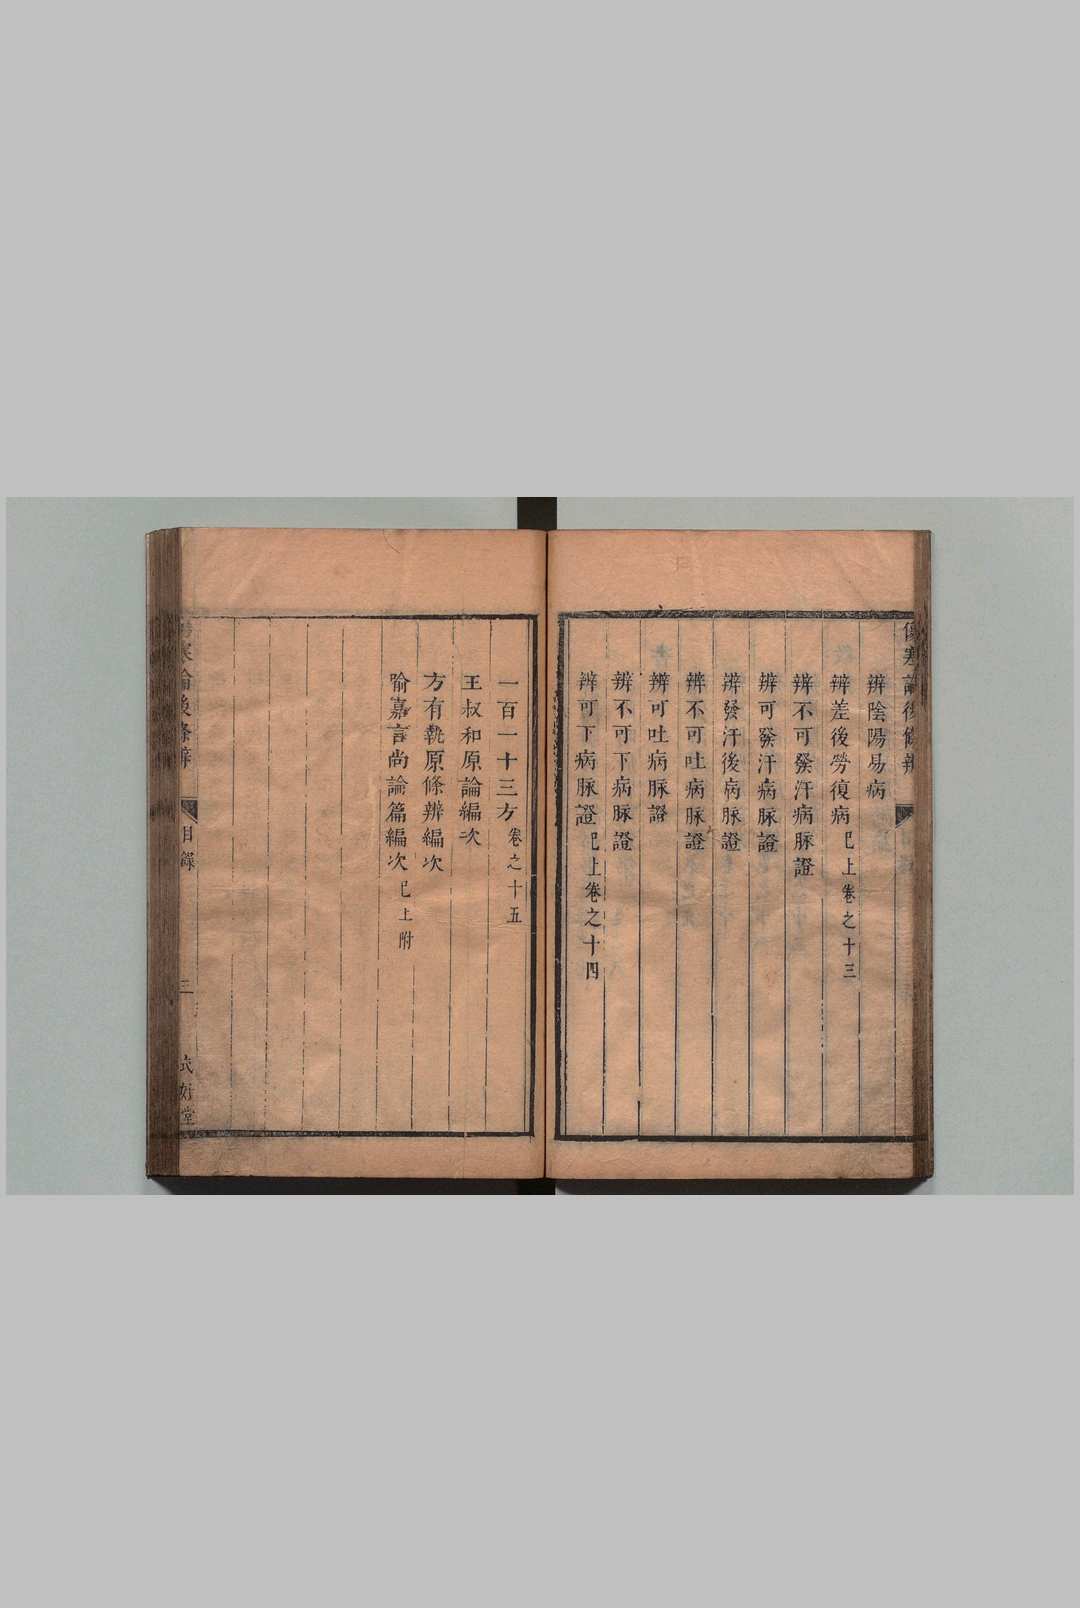 辨陰陽易病
辨差後勞復病 巳上卷之十三
辨不可發汗病脉證
辨可發汗病脉證
辨發汗後病脉證
辨不可吐病脉證
辨可吐病脉證
辨不可下病脉證
辨可下病脉證 巳上卷之十四
一百一十三方 卷之十五
王叔和原論編次
方有執原條辨編次
喻嘉言尚論篇編次 巳上附
傷寒論後條辨
目錄
三
式好堂